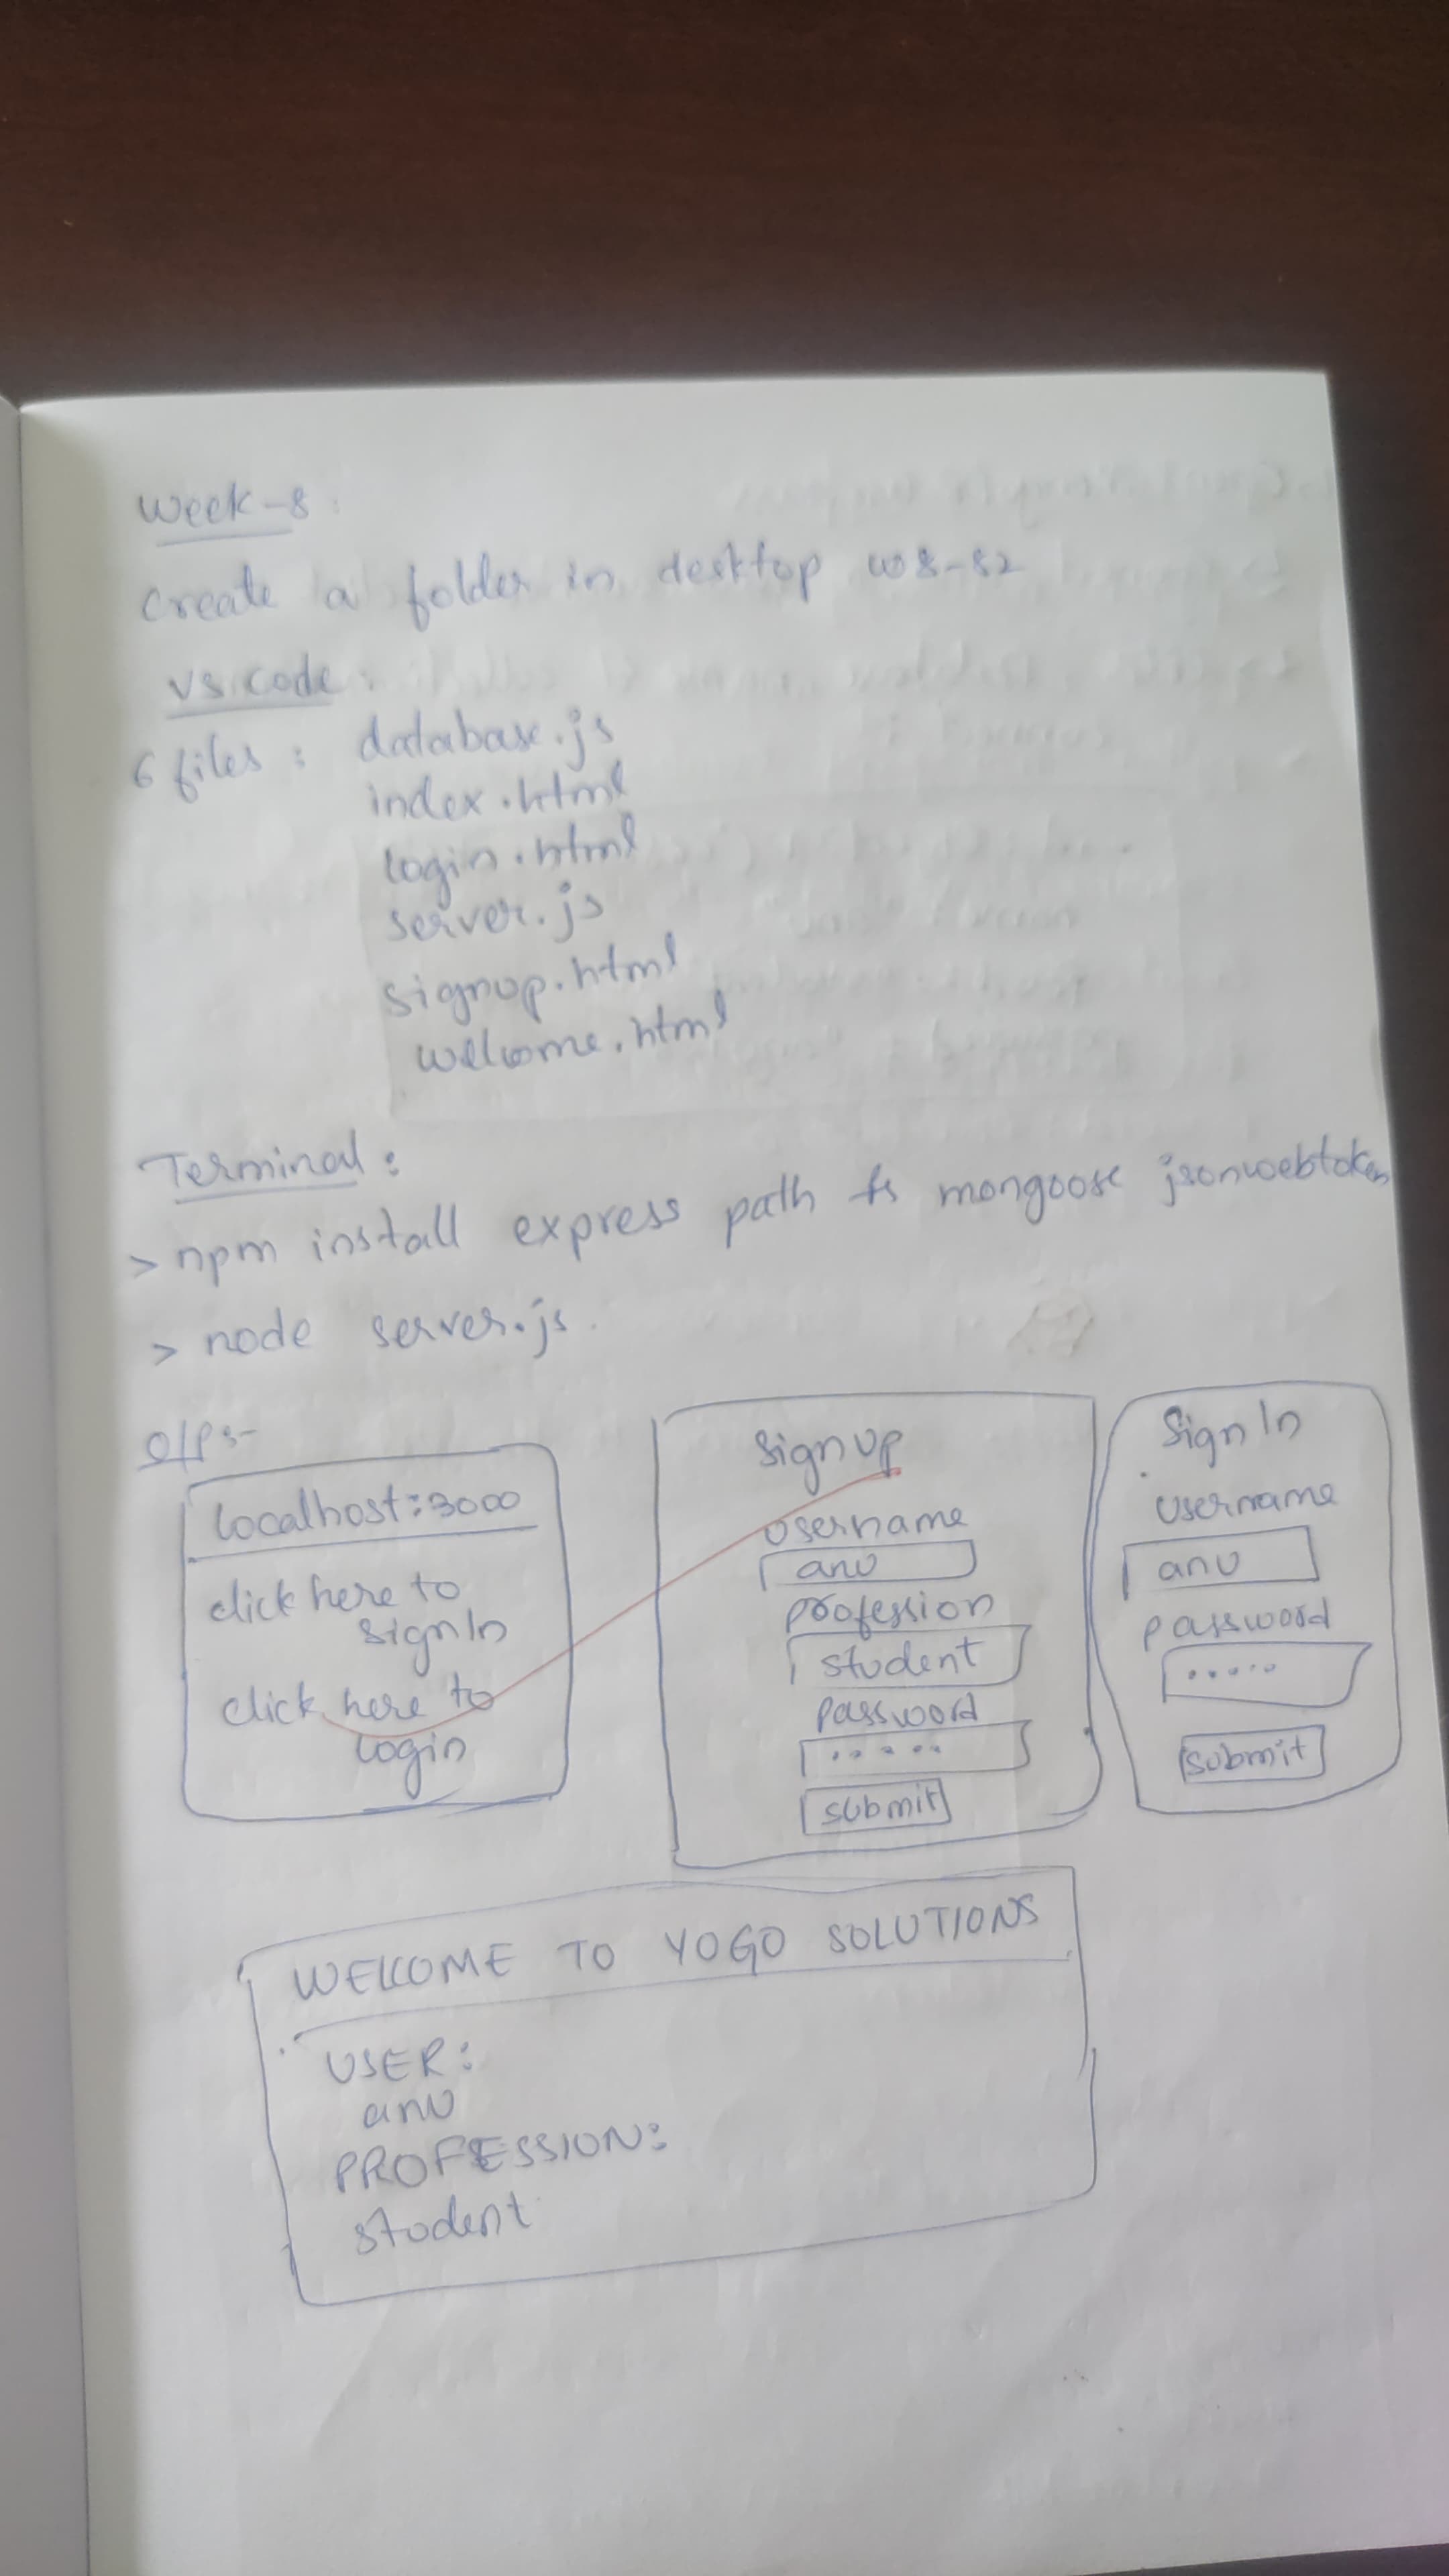 Week-8:
Create a folder in desktop w8-82
VS code:
6 files : database.js
index.html
login.html
server.js
signup.html
welcome.html
Terminal :
> npm install express path fs mongoose jsonwebtoken
> node server.js.
O/P:-
localhost:3000
click here to
Sign In
click here to
login
Sign up
username
anu
profession
student
password
.....
submit
Sign In
username
anu
password
.....
submit
WELCOME TO YOGO SOLUTIONS
USER:
anu
PROFESSION:
student